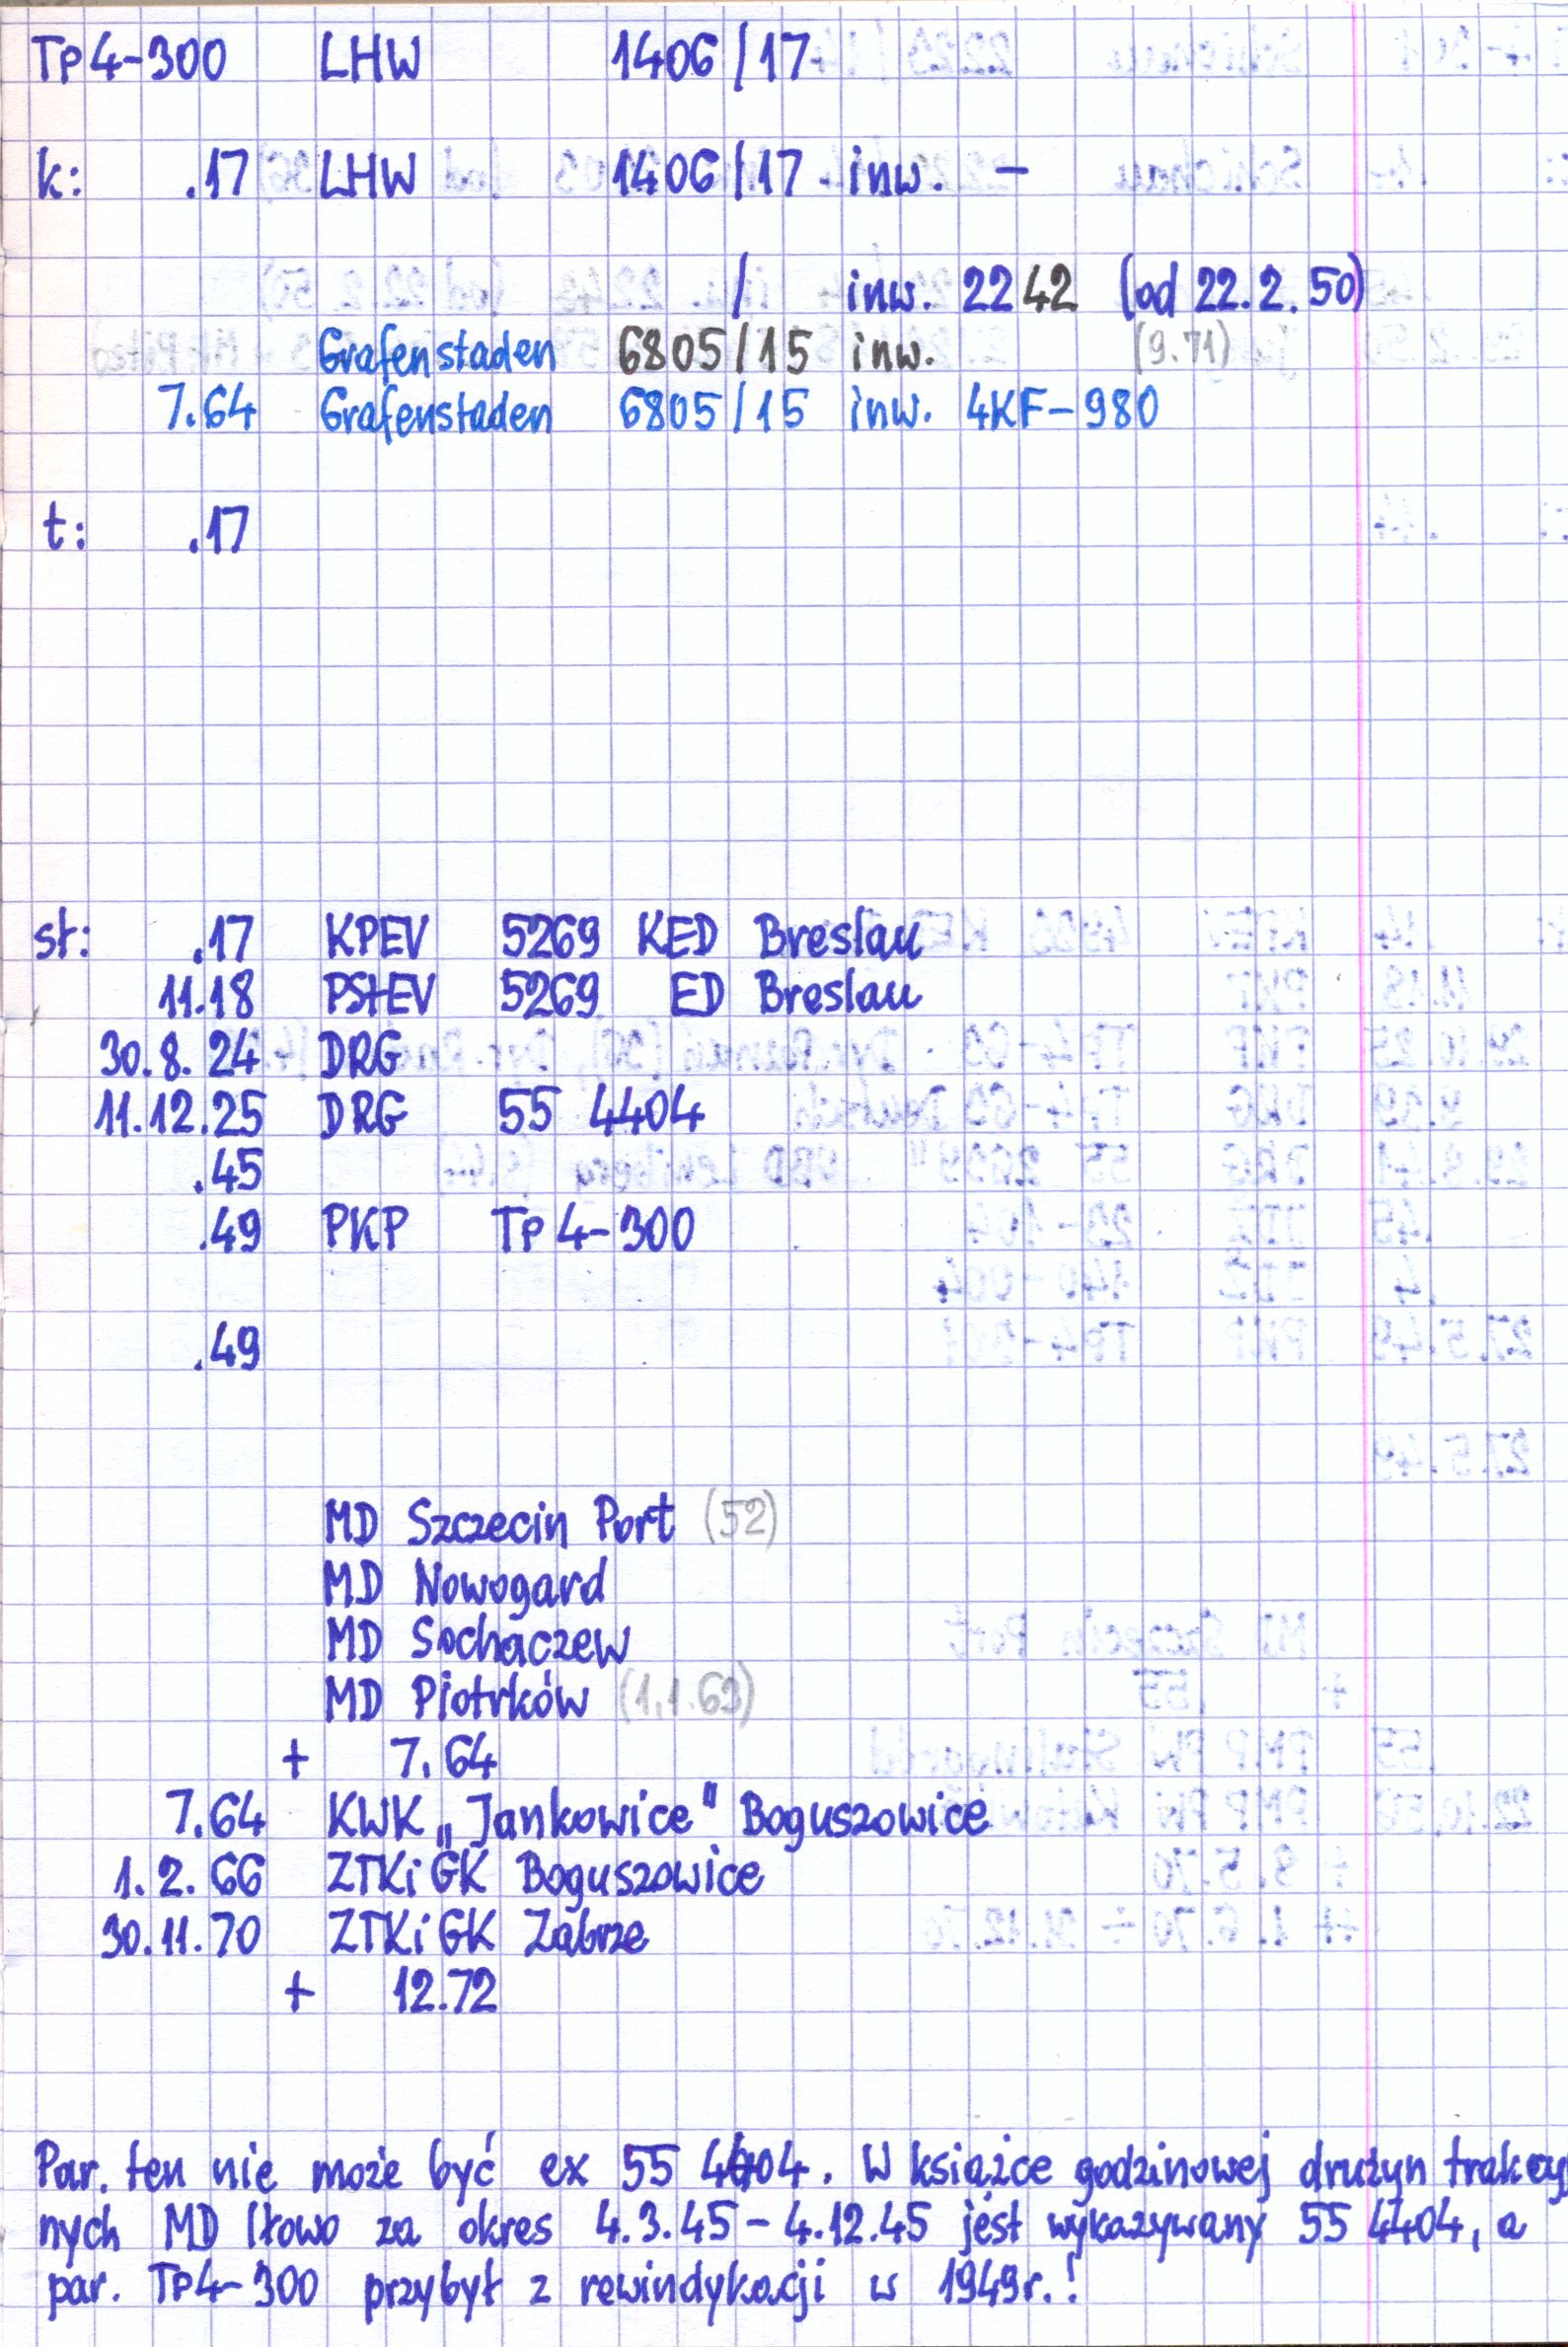 Tp4-300 LHW 1406/17
k: .17 LHW 1406/17 inw. –
/ inw. 2242 (od 22.2.50)
Grafenstaden 6805/15 inw. (9.71)
7.64 Grafenstaden 6805/15 inw. 4KF-980
t: .17
st: .17 KPEV 5269 KED Breslau
11.18 PStEV 5269 ED Breslau
30.8.24 DRG
11.12.25 DRG 55 4404
.45
.49 PKP Tp4-300
.49
MD Szczecin Port (52)
MD Nowogard
MD Sochaczew
MD Piotrków (1.1.63)
+ 7.64
7.64 KWK „Jankowice" Boguszowice
1.2.66 ZTKiGK Boguszowice
30.11.70 ZTKiGK Zabrze
+ 12.72
Par. ten nie może być ex 55 4404. W książce godzinowej drużyn trakcyj
nych MD Iłowo za okres 4.3.45 – 4.12.45 jest wykazywany 55 4404, a
par. Tp4-300 przybył z rewindykacji w 1949r.!